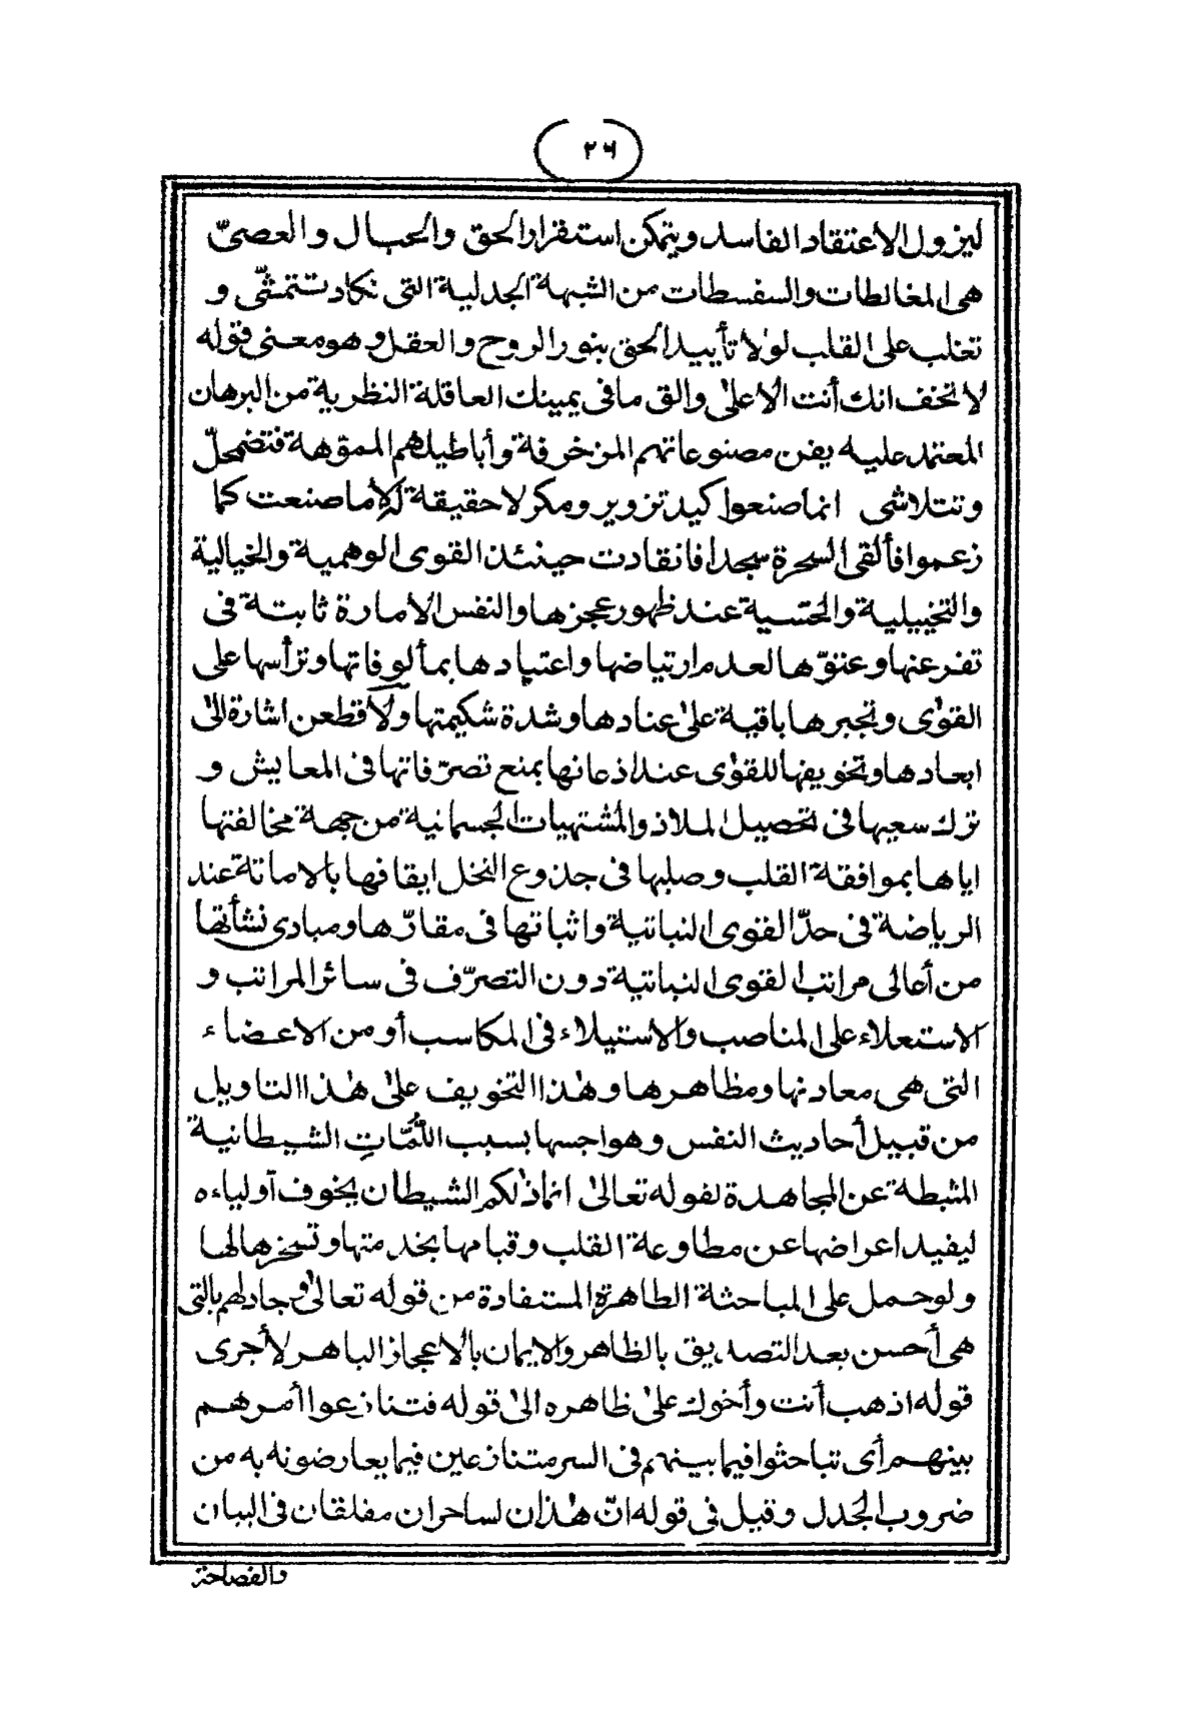 ٢٦
ليزول الاعتقاد الفاسد ويتمكن استقرار الحق والحبال والعصىّ
هى المغالطات والسفسطات من الشبهة الجدلية التى تكاد تتمشّى و
تغلب على القلب لولا تأييد الحق بنور الروح والعقل وهو معنى قوله
لا تخف انك أنت الاعلى والق ما فى يمينك العاقلة النظرية من البرهان
المعتمد عليه يفن مصنوعاتهم المزخرفة وأباطيلهم المموّهة فتضمحلّ
وتتلاشى انما صنعوا كيد تزوير ومكر لا حقيقة له لا ما صنعت كما
زعموا فألقى السحرة سجدا فانقادت حينئذ القوى الوهمية والخيالية
والتخييلية والحسّية عند ظهور عجزها والنفس الامارة ثابتة فى
تفرعنها وعتوّها لعدم ارتياضها واعتيادها بمألوفاتها وترأسها على
القوى وتجبرها باقية على عنادها وشدة شكيمتها ولأقطعن اشارة الى
ابعادها وتخويفها للقوى عند اذعانها بمنع تصرّفاتها فى المعايش و
ترك سعيها فى تحصيل الملاذ والمشتهيات الجسمانية من جهة مخالفتها
اياها بموافقة القلب وصلبها فى جذوع النخل ايقافها بالاماتة عند
الرياضة فى حدّ القوى النباتية واثباتها فى مقارّها ومبادى نشأتها
من أعالى مراتب القوى النباتية دون التصرّف فى سائر المراتب و
الاستعلاء على المناصب والاستيلاء فى المكاسب أو من الاعضاء
التى هى معادنها ومظاهرها وهذا التخويف على هذا التاويل
من قبيل أحاديث النفس وهواجسها بسبب اللُّمّاتِ الشيطانية
المثبطة عن المجاهدة لقوله تعالى انما ذلكم الشيطان يخوف أولياءه
ليفيد اعراضها عن مطاوعة القلب وقيامها بخدمتها وتسخرها لها
ولو حمل على المباحثة الظاهرة المستفادة من قوله تعالى وجادلهم بالتى
هى أحسن بعد التصديق بالظاهر والايمان بالاعجاز الباهر لأجرى
قوله اذهب أنت وأخوك على ظاهره الى قوله فتنازعوا أمرهم
بينهم أى تباحثوا فيما بينهم فى السر متنازعين فيما يعارضونه به من
ضروب الجدل وقيل فى قوله انّ هذان لساحران مفلقان فى البيان
والفصاحة